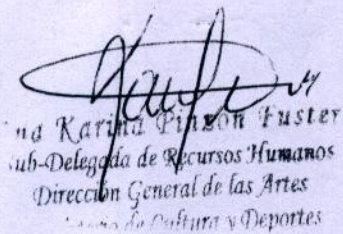 na Karina Pinzón Fuster
ub-Delegada de Recursos Humanos
Dirección General de las Artes
de Cultura y Deportes